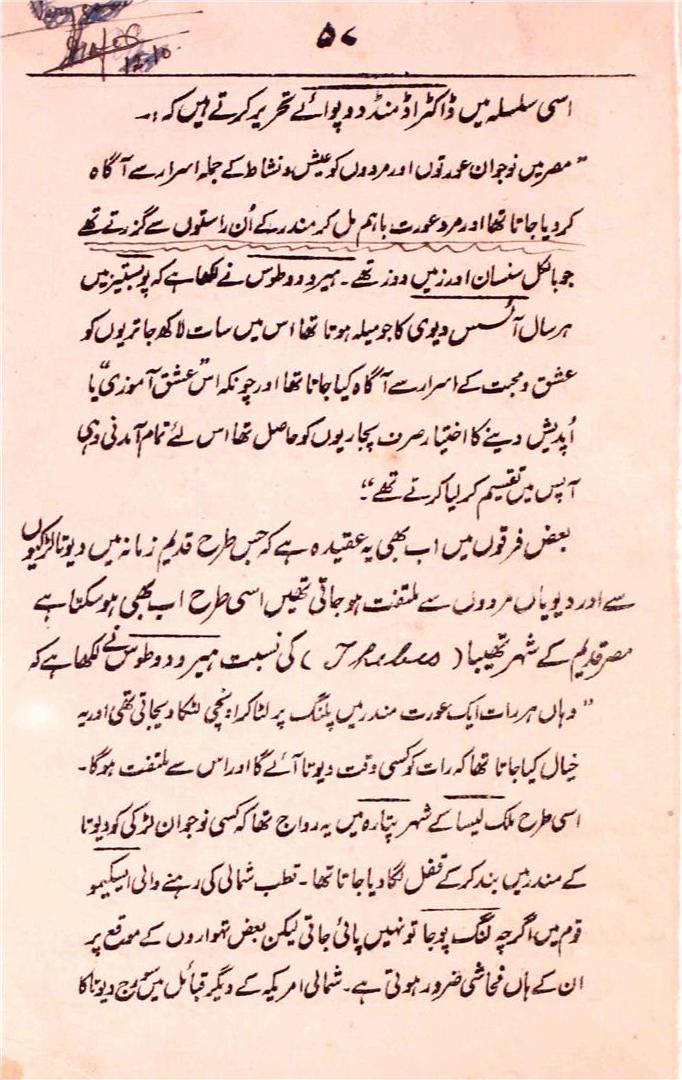 ۵۷
اسی سلسلہ میں ڈاکٹر اڈمنڈ دوپوائے تحریر کرتے ہیں کہ :۔
"مصر میں نوجوان عورتوں اور مردوں کو عیش و نشاط کے جملہ اسرار سے آگاہ
کردیا جاتا تھا اور مرد عورت باہم مل کر مندر کے اُن راستوں سے گزرتے تھے
جو بالکل سنسان اور زمیں دوز تھے۔ ہیرودوطوس نے لکھا ہے کہ بوبستیز میں
ہر سال آئسس دیوی کا جو میلہ ہوتا تھا اس میں سات لاکھ جاتریوں کو
عشق و محبت کے اسرار سے آگاہ کیا جاتا تھا اور چونکہ اس "عشق آموزی" یا
اُپدیش دینے کا اختیار صرف پجاریوں کو حاصل تھا اس لئے تمام آمدنی وہی
آپس میں تقسیم کر لیا کرتے تھے"۔
بعض فرقوں میں اب بھی یہ عقیدہ ہے کہ جس طرح قدیم زمانہ میں دیوتا لڑکیوں
سے اور دیویاں مردوں سے ملتفت ہو جاتی تھیں اسی طرح اب بھی ہو سکتا ہے
مصر قدیم کے شہر تھیبا (Thebes) کی نسبت ہیرودوطوس نے لکھا ہے کہ
"وہاں ہر رات ایک عورت مندر میں پلنگ پر لٹا کر اونچی لٹکا دیجاتی تھی اور یہ
خیال کیا جاتا تھا کہ رات کو کسی وقت دیوتا آئے گا اور اس سے ملتفت ہوگا۔
اسی طرح ملک لیسا کے شہر پتارہ میں یہ رواج تھا کہ کسی نوجوان لڑکی کو دیوتا
کے مندر میں بند کر کے قفل لگا دیا جاتا تھا۔ قطب شمالی کی رہنے والی اسیکیمو
قوم میں اگرچہ لنگ پوجا تو نہیں پائی جاتی لیکن بعض تہواروں کے موقع پر
ان کے ہاں فحاشی ضرور ہوتی ہے۔ شمالی امریکہ کے دیگر قبائل میں سورج دیوتا کا